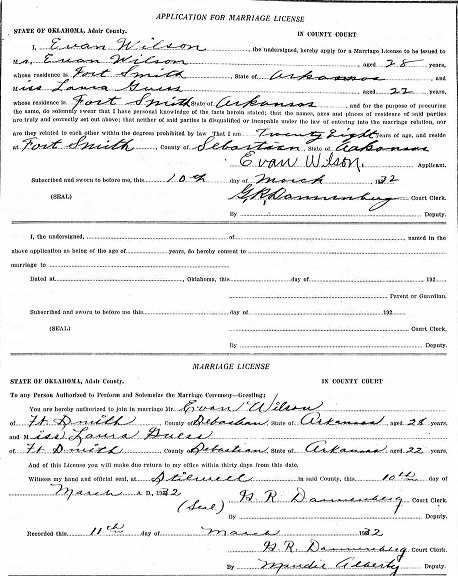 APPLICATION FOR MARRIAGE LICENSE
STATE OF OKLAHOMA, Adair County. IN COUNTY COURT
I, Evan Wilson, the undersigned, hereby apply for a Marriage License to be issued to
Mr. Evan Wilson, aged 28 years,
whose residence is Fort Smith, State of Arkansas, and
Miss Laura Guess, aged 22 years,
whose residence is Fort Smith State of Arkansas, and for the purpose of procuring
the same, do solemnly swear that I have personal knowledge of the facts herein stated; that the names, ages and places of residence of said parties
are truly and correctly set out above; that neither of said parties is disqualified or incapable under the law of entering into the marriage relation, nor
are they related to each other within the degrees prohibited by law. That I am Twenty Eight years of age, and reside
at Fort Smith, County of Sebastian, State of Arkansas
Evan Wilson, Applicant.
Subscribed and sworn to before me, this 10th day of March 1932
(SEAL) G R Dannenberg Court Clerk.
By Deputy.
I, the undersigned, of, named in the
above application as being of the age of years, do hereby consent to
marriage to
Dated at, Oklahoma, this day of 192
Parent or Guardian.
Subscribed and sworn to before me this day of 192
(SEAL) Court Clerk.
By Deputy.
MARRIAGE LICENSE
STATE OF OKLAHOMA, Adair County. IN COUNTY COURT
To any Person Authorized to Perform and Solemnize the Marriage Ceremony—Greeting:
You are hereby authorized to join in marriage Mr. Evan Wilson
of Ft Smith County of Sebastian, State of Arkansas aged 28 years,
and Miss Laura Guess
of Ft Smith, County of Sebastian, State of Arkansas, aged 22 years.
And of this License you will make due return to my office within thirty days from this date.
Witness my hand and official seal, at Stilwell in said county, this 10th day of
March A. D., 1932
(Seal) G. R. Dannenberg Court Clerk.
By Deputy.
Recorded this 11th day of March 1932
G. R. Dannenberg Court Clerk.
By Maudie Alberty Deputy.